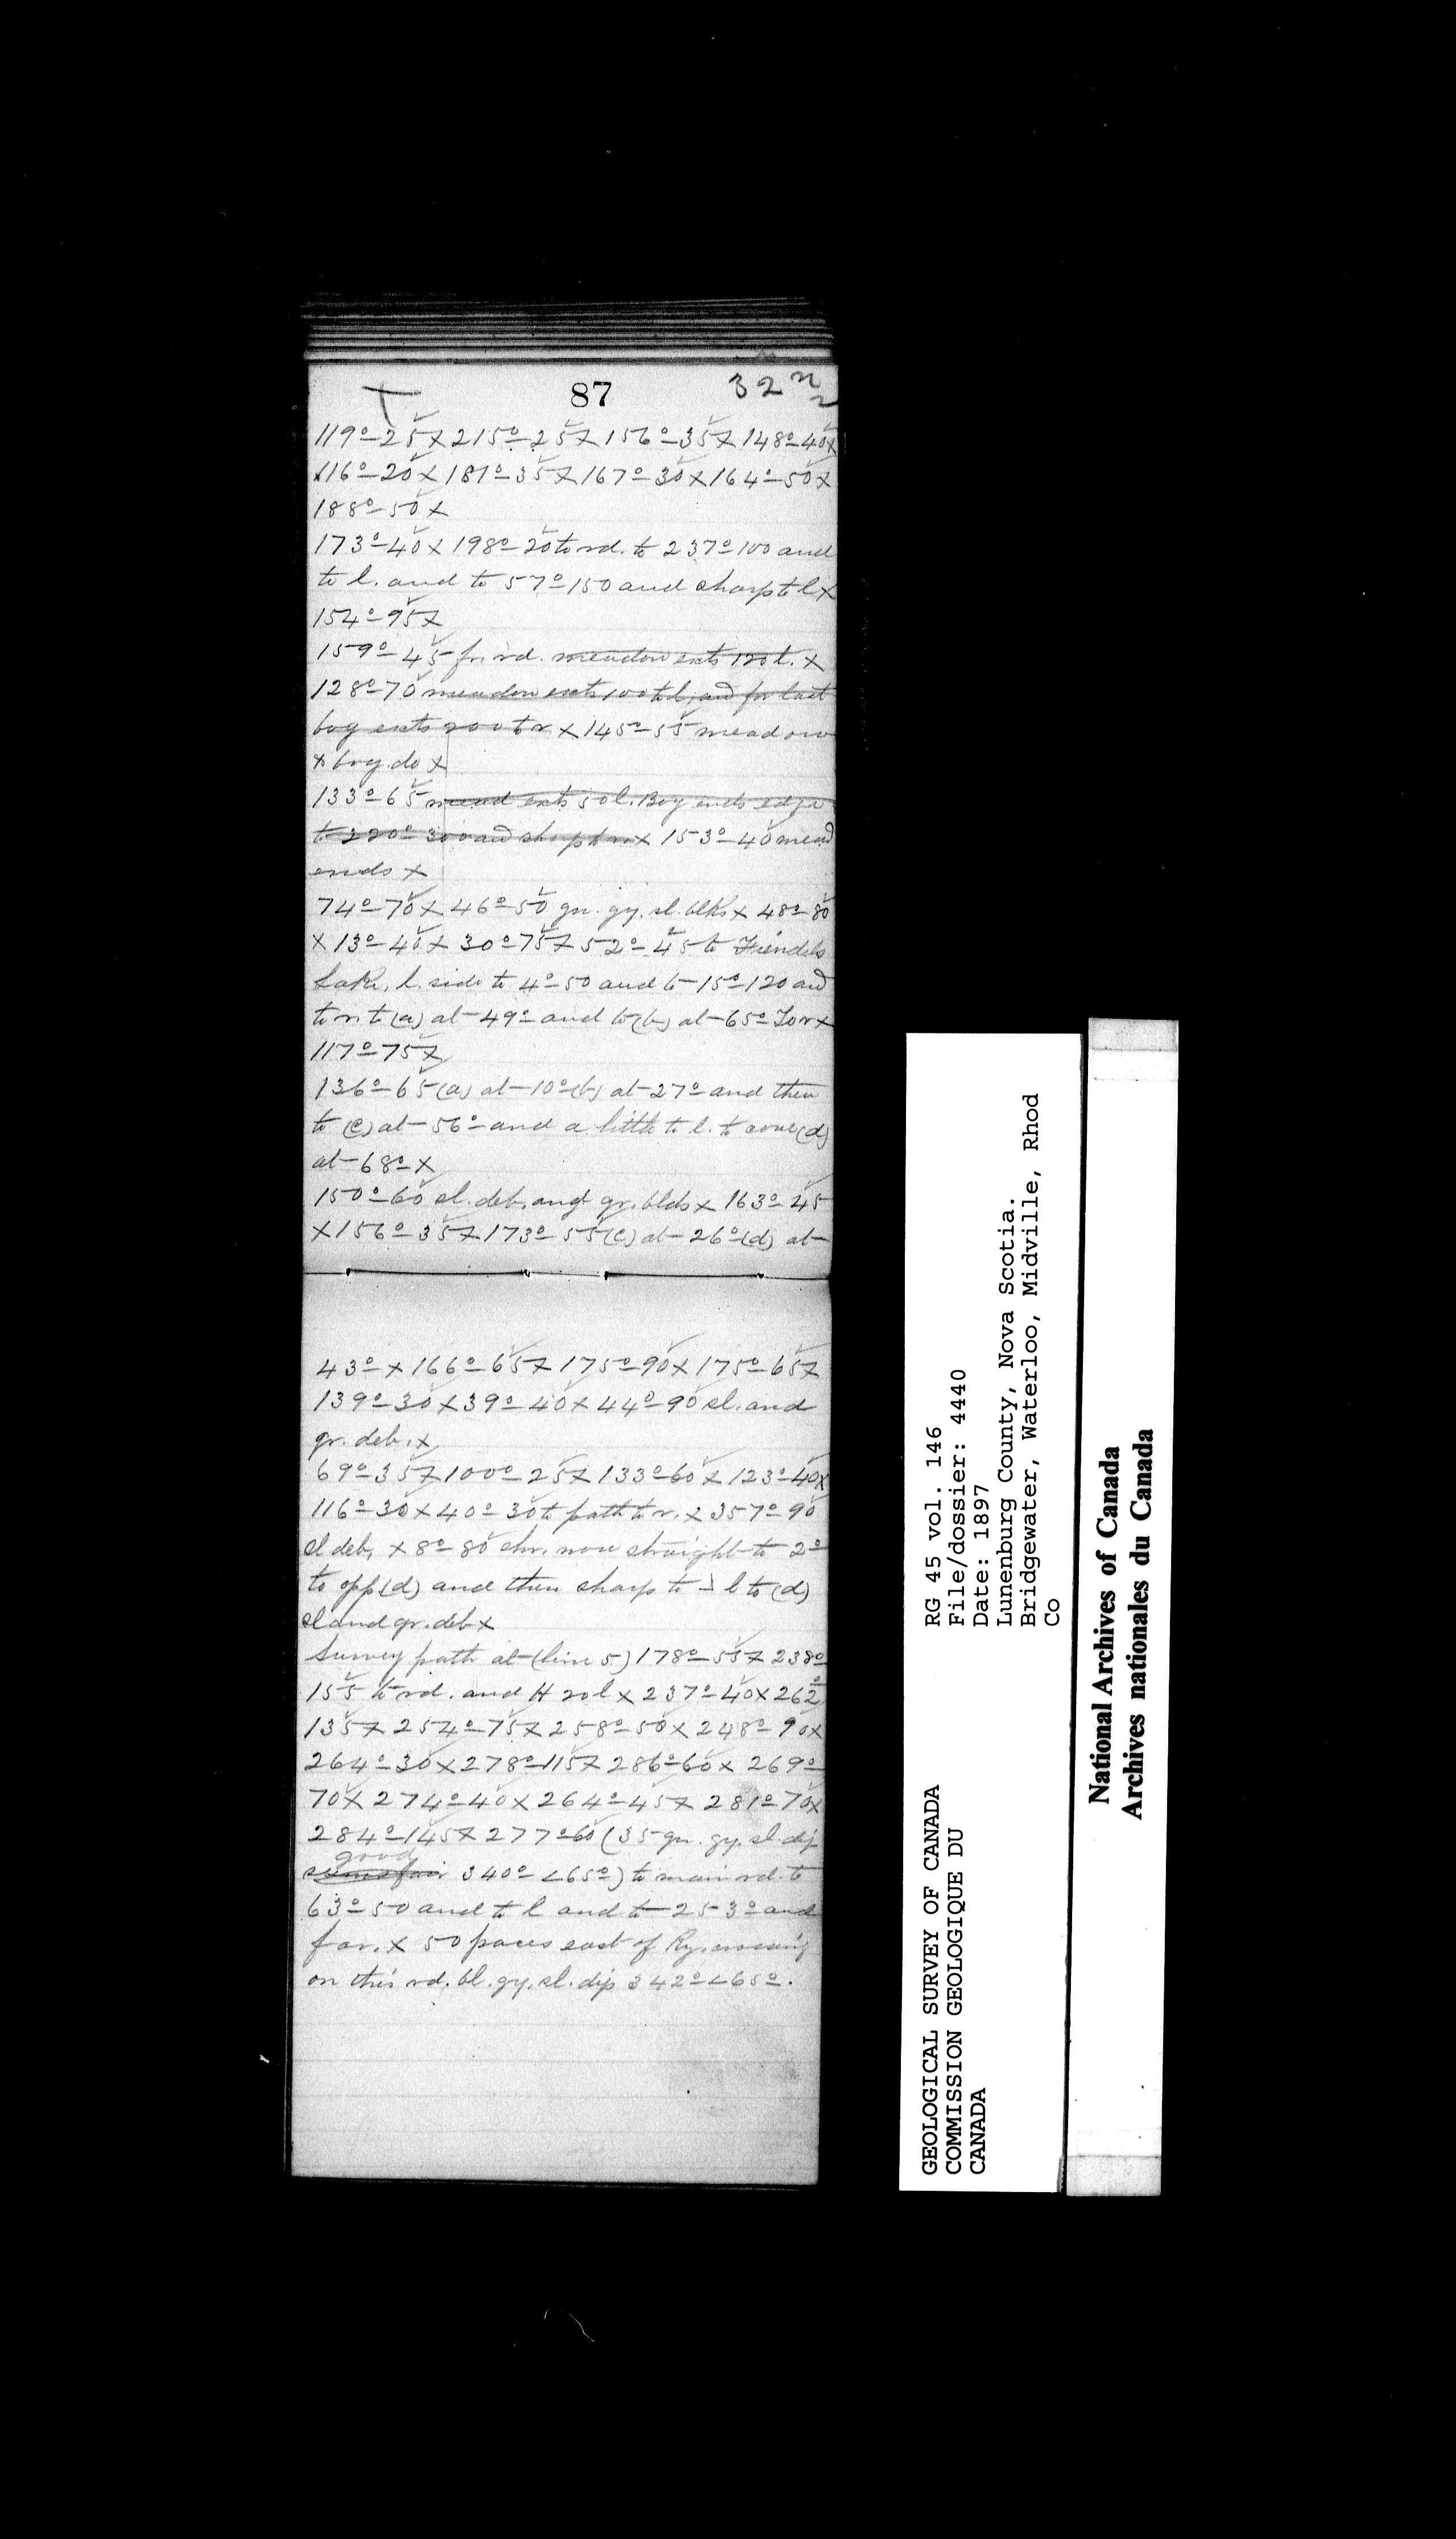 T 87 32
119°-25 x 215°-25 x 156°-35 x 148°-40 x
116°-20 x 181°-35 x 167°-30 x 164°-50 x
188°-50 x
173°-40 x 198°-20 to rd. to 237°-100 and
to l. and to 57°-150 and sharp to l x
154°-95 x
159°-45 fr. rd. meadow exts 120 l. x
128°-70 meadow exts 100 to l, and for last
bog exts 200 to r x 145°-55 meadow
x bog. do x
133°-65 mead exts 50 l. Bog ends edge
to 220°-300 and sharp to r x 153°-40 mead
ends x
74°-70 x 46°-50 gn. gy. sl. blks x 48°-80
x 13°-40 x 30°-75 x 52°-45 to Fiendels
Lake. l. side to 4°-50 and to 15°-120 and
to r. to (a) at 49° and to (b) at 65° To r x
117°-75 x
136°-65 (a) at 10° (b) at 27° and then
to (c) at 56° and a little to l. to cove (d)
at 68° x
150°-60 sl. deb. and gr. blds x 163°-45
x 156°-35 x 173°-55 (c) at 26° (d) at
43° x 166°-65 x 175°-90 x 175°-65 x
139°-30 x 39°-40 x 44°-90 sl. and
gr. deb. x
69°-35 x 100°-25 x 133°-60 x 123°-40 x
116°-30 x 40°-30 to path to r. x 357°-90
sl deb. x 8°-80 shr. now straight to 2°
to opp (d) and then sharp to l to (d)
sl and gr. deb x
Survey path at (line 5) 178°-55 x 238°
155 to rd. and H 20 l x 237°-40 x 262°
135 x 254°-75 x 258°-50 x 248°-90 x
264°-30 x 278°-115 x 286°-60 x 269°
70 x 274°-40 x 264°-45 x 281°-70 x
284°-145 x 277°-60 (35 gn. gy. sl. dip
good
340° <65°) to main rd. to
63°-50 and to l and to 253° and
far. x 50 paces east of Ry. crossing
on this rd. bl. gy. sl. dip 342° <65°.
GEOLOGICAL SURVEY OF CANADA
COMMISSION GEOLOGIQUE DU
CANADA
RG 45 vol. 146
File/dossier: 4440
Date: 1897
Lunenburg County, Nova Scotia.
Bridgewater, Waterloo, Midville, Rhod
Co
National Archives of Canada
Archives nationales du Canada